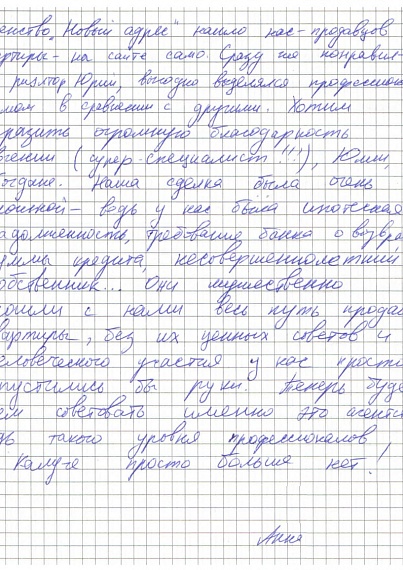 енство „Новый адрес" нашло нас - продавцов
артиры - на сайте само. Сразу же понравил-
риэлтор Юрий, выгодно выделялся профессион
мом в сравнении с другими. Хотим
разить огромную благодарность
вгении (супер-специалист!!!), Юлии,
огдане. Наша сделка была очень
ожной - ведь у нас была ипотечная
адолженность, требование банка о возвра
уммы кредита, несовершеннолетний
обственник... Они мужественно
ошли с нами весь путь продаж
вартиры, без их ценных советов и
еловеческого участия у нас прост
пустились бы руки. Теперь буде
ем советовать именно это агентс
дь такого уровня профессионалов
Калуге просто больше нет!
Анна